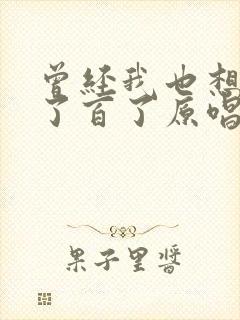 曾经我也想
了百了原唱
果子里醬